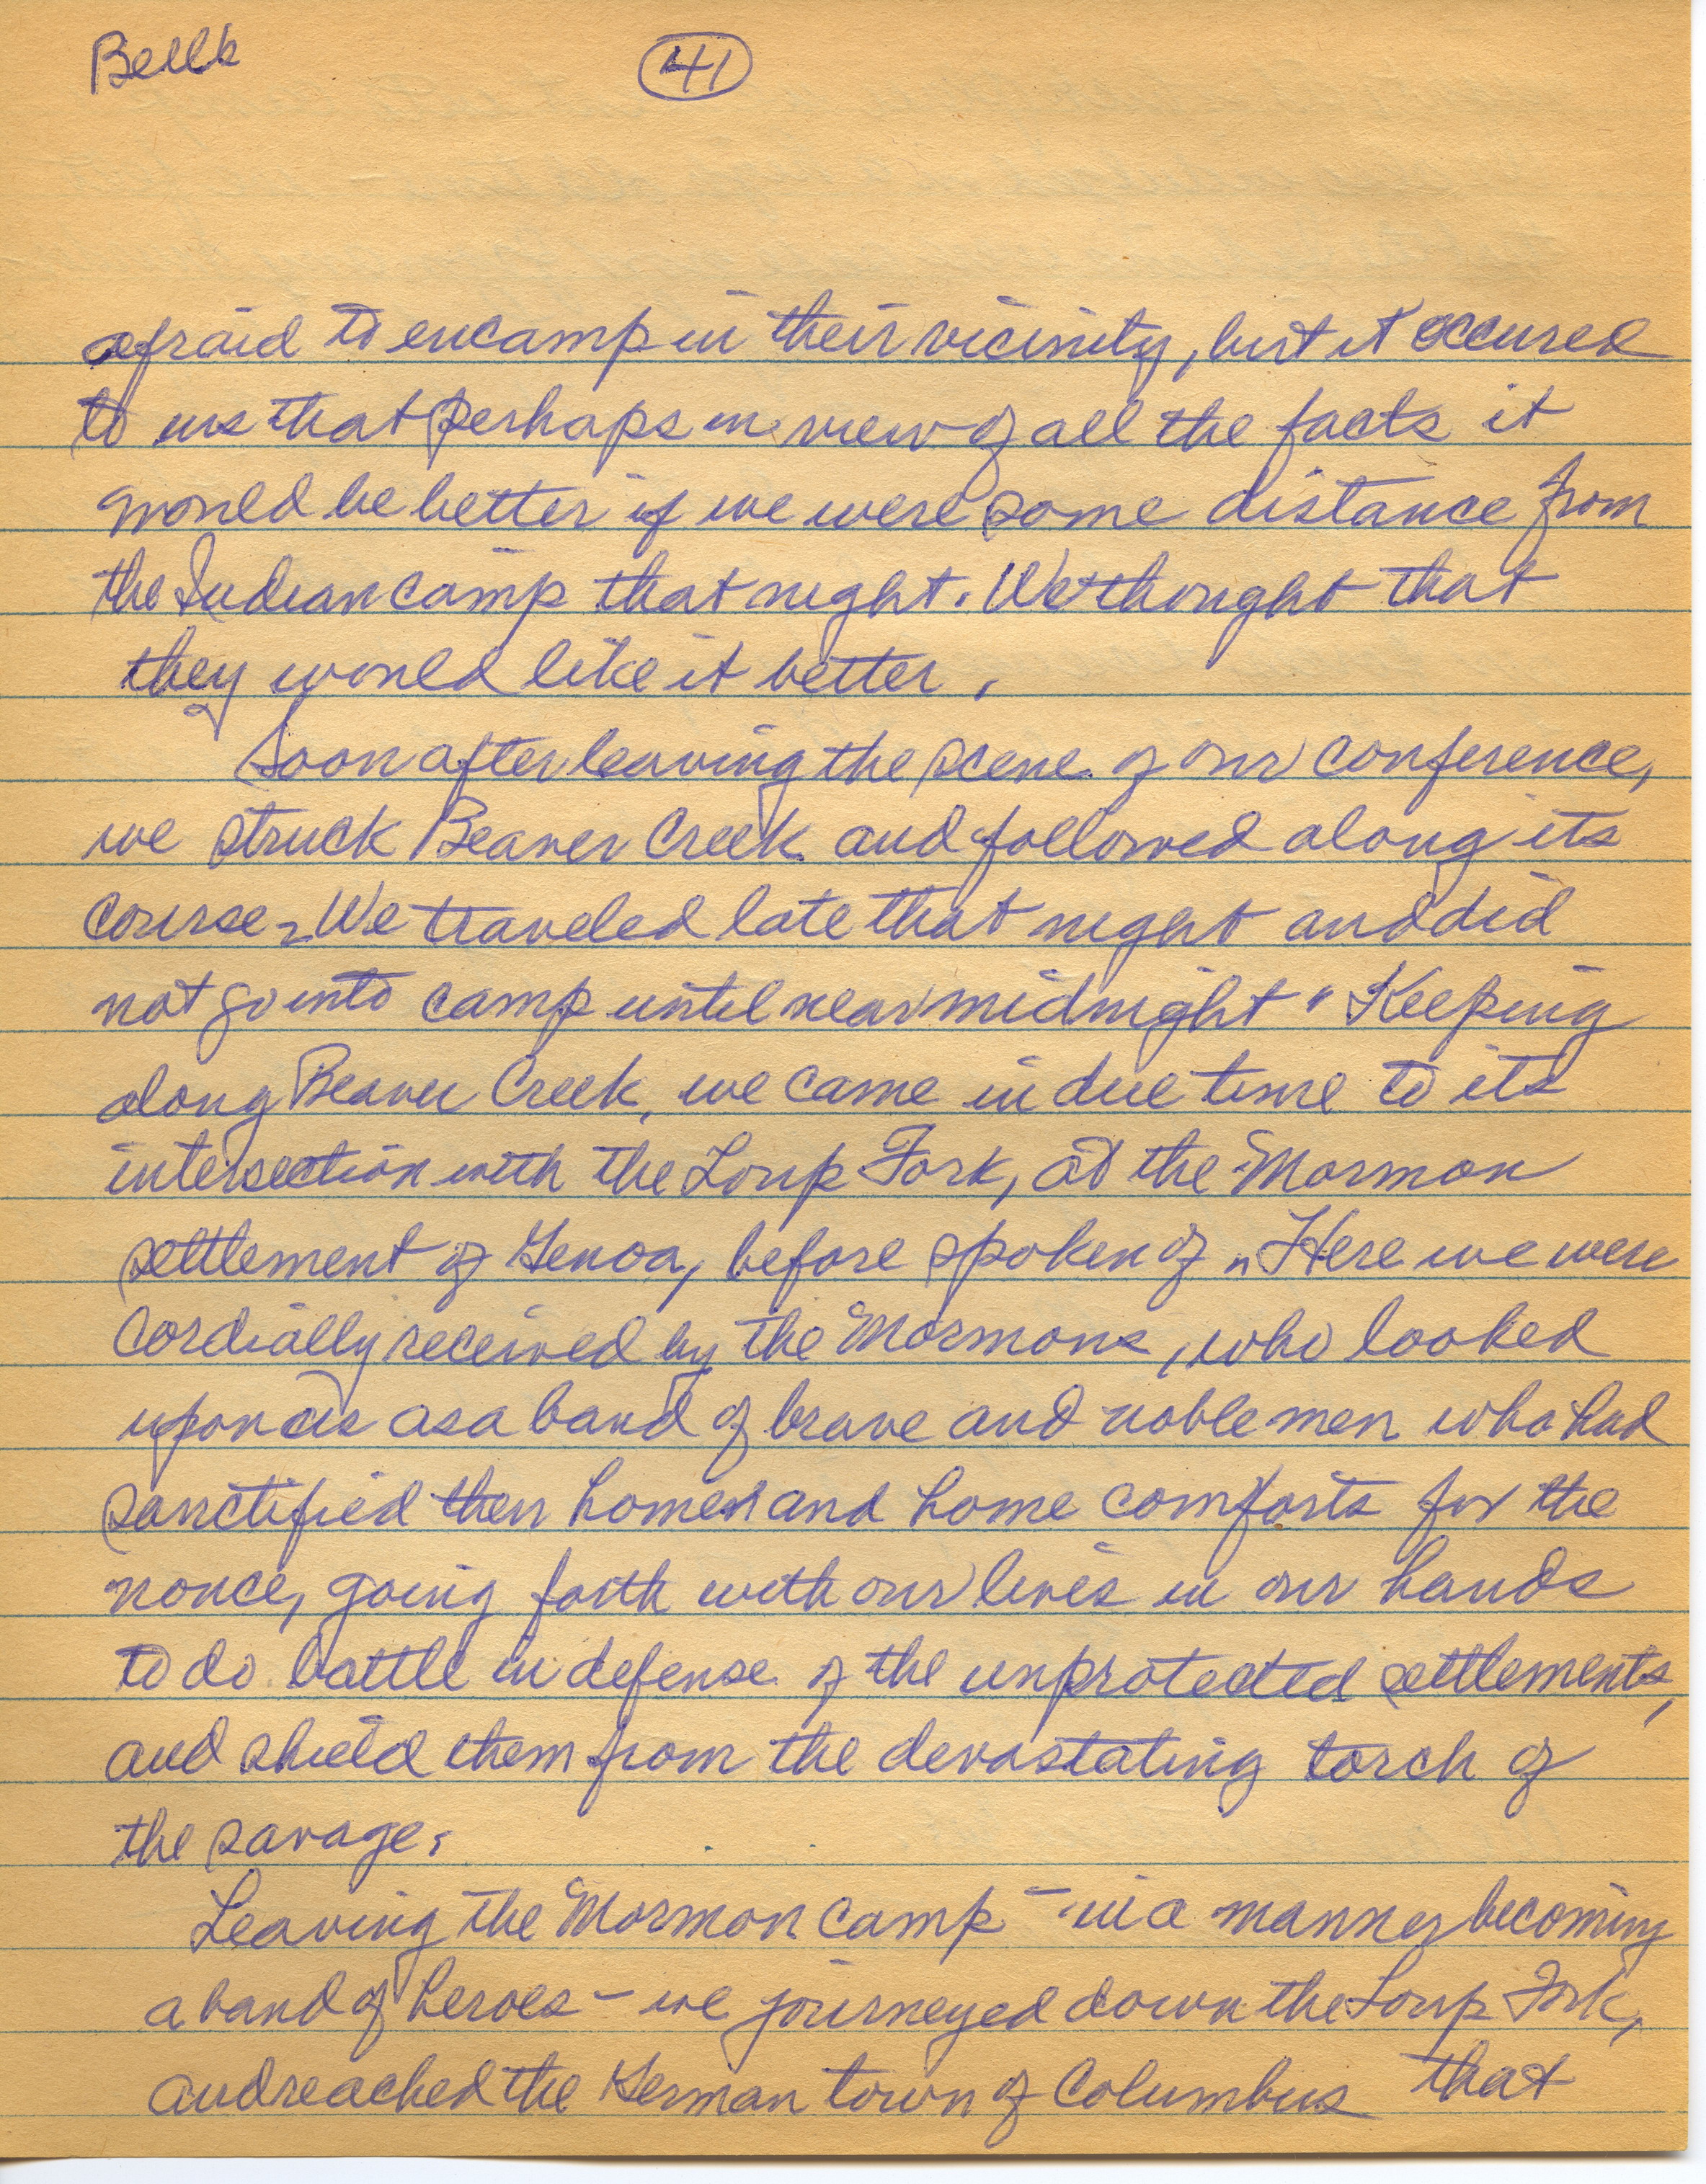 Bellk
41
afraid to encamp in their vicinity, but it occured
to us that perhaps in view of all the facts it
would be better if we were some distance from
the Indian camp that night. We thought that
they would like it better.
Soon after leaving the scene of our conference,
we struck Beaver Creek and followed along its
course. We traveled late that night and did
not go into camp until near midnight. Keeping
along Beaver Creek, we came in due time to its
intersection with the Loup Fork, at the Mormon
settlement of Genoa, before spoken of. Here we were
cordially received by the Mormons, who looked
upon us as a band of brave and noble men who had
sanctified their homes and home comforts for the
nonce, going forth with our lives in our hands
to do battle in defense of the unprotected settlements,
and shield them from the devastating torch of
the savage.
Leaving the Mormon camp - in a manner becoming
a band of heroes - we journeyed down the Loup Fork,
and reached the German town of Columbus that